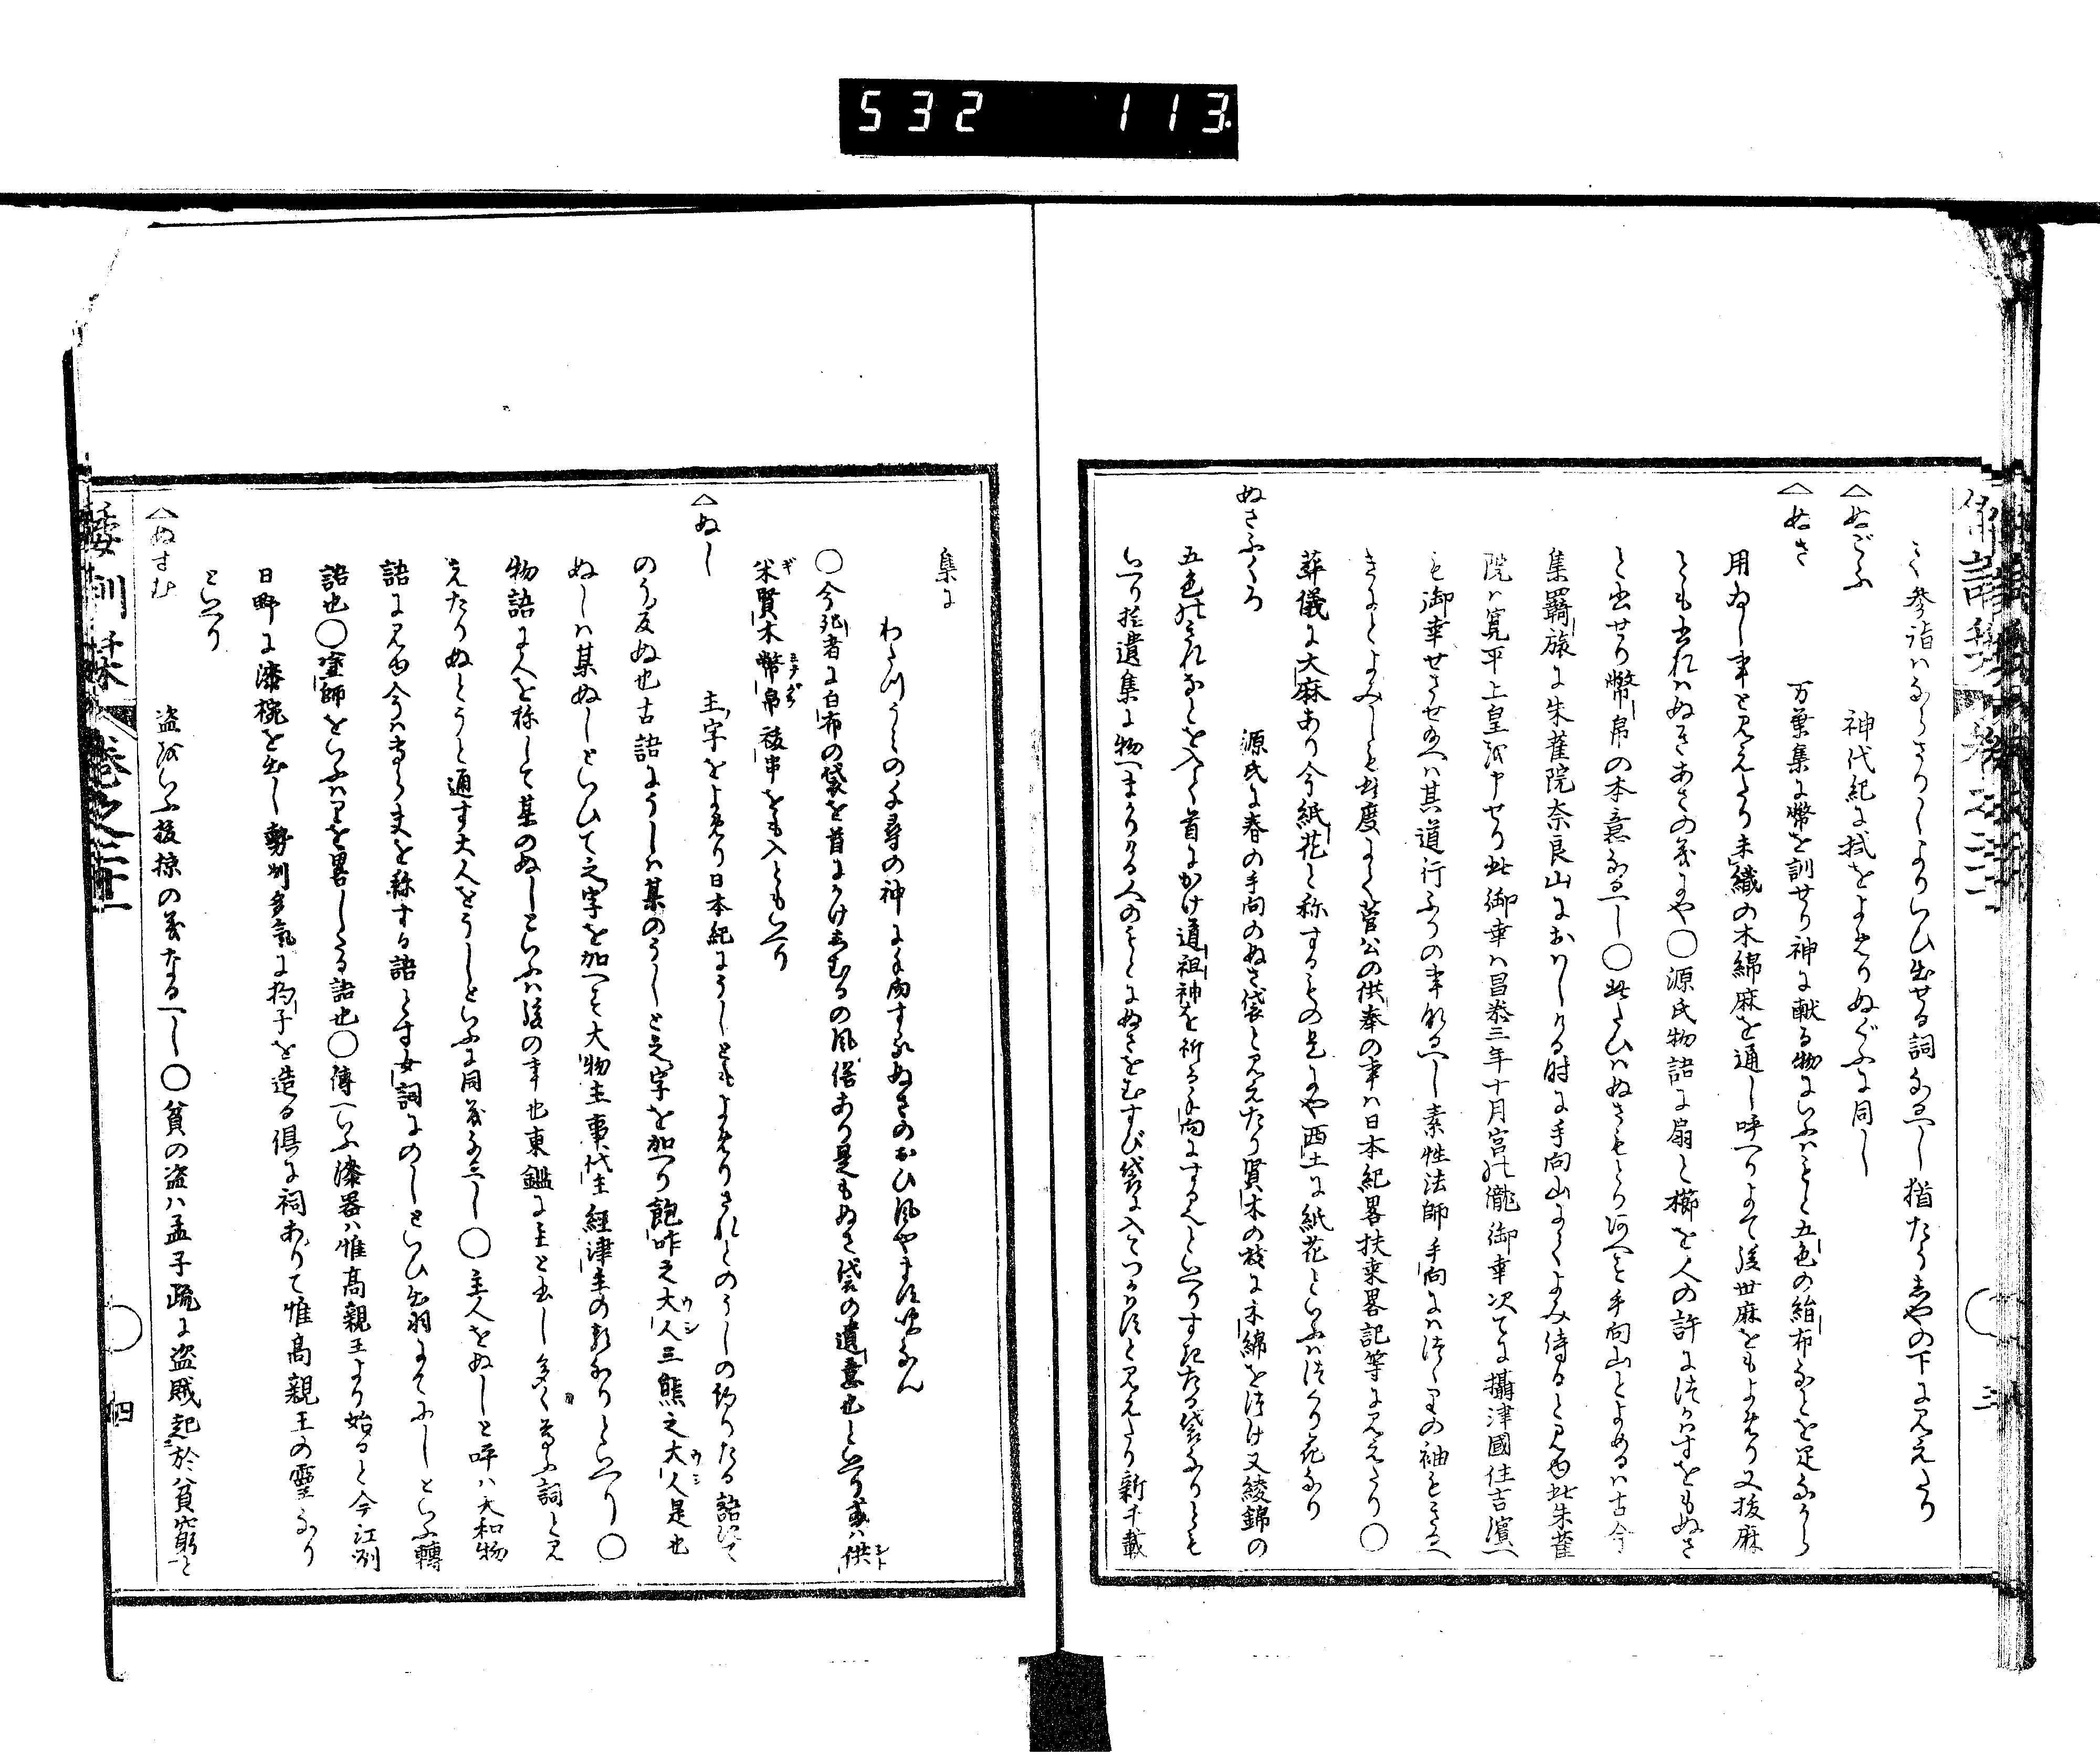 532 113
く参詣はならさりしよりいひ出せる詞なるへし猶たうしやの下に見えたり
△ぬごふ 神代紀に拭をよめりぬぐふに同し
△ぬさ 万葉集に幣を訓せり神に献る物にいふはもと五色の絁布なとを足なから
用ゐし事と見えたり未織の木綿麻を通し呼へりよて後世麻をもよめり又抜麻
とも書れはぬきあさの義にや○源氏物語に扇と櫛を人の許につかはすをもぬさ
と書せり幣帛の本意なるへし○此たひはぬさもとりあへす手向山とよめるは古今
集羇旅に朱雀院奈良山におはしける時に手向山にてよみ侍ると見ゆ此朱雀
院は寛平上皇を申せり此御幸は昌泰三年十月宮の瀧御幸次てに攝津國住吉濱へ
も御幸せさせ給へは其道行ふりの事なるへし素性法師手向にはつゝりの袖もきるへ
きにとよみしも此度にて菅公の供奉の事は日本紀畧扶桒畧記等に見えたり○
葬儀に大麻あり今紙花と称するもの是にや西土に紙花といふはつくり花なり
ぬさふくろ 源氏に春の手向のぬさ袋と見えたり賢木の枝に木綿をつけ又綾錦の
五色のきれなとを入て首にかけ道祖神を祈る手向にするへといへりすきたる袋なりとも
いへり拾遺集に物へまかりける人のもとにぬさをむすひ袋に入てつかはすと見えたり新千載
倭訓栞 巻之二十一 三
集に
わたつうみの千尋の神に手向するぬさのおひ風やまず吹なん
○今死者に白布の袋を首にかけしむるの風俗あり是もぬさ袋の遺意也といへり或は供
米賢木幣帛祓串をも入ともいへり
△ぬし 主字をよめり日本紀にうしともよめりされとのうしの約りたる語にて
のう反ぬ也古語にうしは某のうしと之字を加へり飽咋之大人三熊之大人是也
ぬしは某ぬしといひて之字を加へす大物主事代主經津主の類なりといへり○
物語に人を称して某のぬしといふは後の事也東鑑に主と書し多く尊ふ詞と見
えたりぬとうと通す大人をうしといふに同義なるへし○主人をぬしと呼は大和物
語に見ゆ今は専ら夫を称する語とす女詞にのしといひ出羽にてにしといふ轉
語也○塗師をいふはりを畧したる語也○傳へいふ漆器は惟高親王より始ると今江州
日野に漆椀を出し勢州多氣に杓子を造る俱に祠ありて惟高親王の靈なり
といへり
△ぬすむ 盗をいふ抜掠の義なるへし○貧の盗は孟子疏に盗賊起於貧窮と
倭訓栞 巻之二十一 四